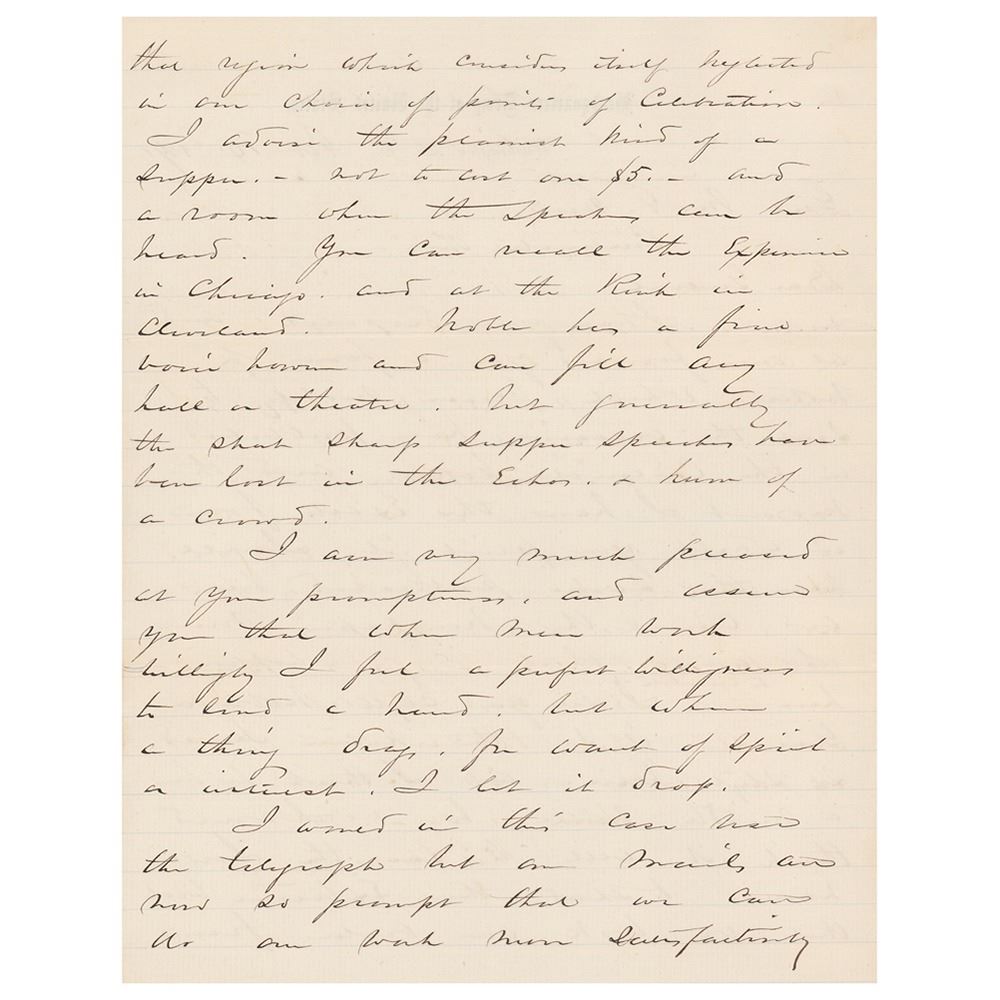 that region which considers itself neglected
in our choice of points of Celebration.
I advise the plainest kind of a
supper. - not to cost over $5. - and
a room where the speakers can be
heard. You can recall the Experience
in Chicago. and at the Rink in
Cleveland. Noble has a fine
voice however and can fill any
hall or theatre. but generally
the short sharp supper speeches have
been lost in the Echos. & hum of
a crowd.
I am very much pleased
at your promptness, and assure
you that when men work
willingly I feel a perfect willingness
to lend a hand. but when
a thing drags. for want of spirit
or interest. I let it drop.
I would in this case use
the telegraph but our mails are
now so prompt that we can
do our work more satisfactorily